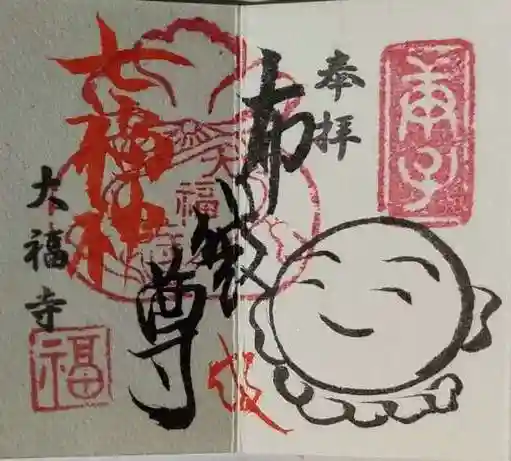 奉拝
布袋尊
七福神
大福寺
大福寺
福